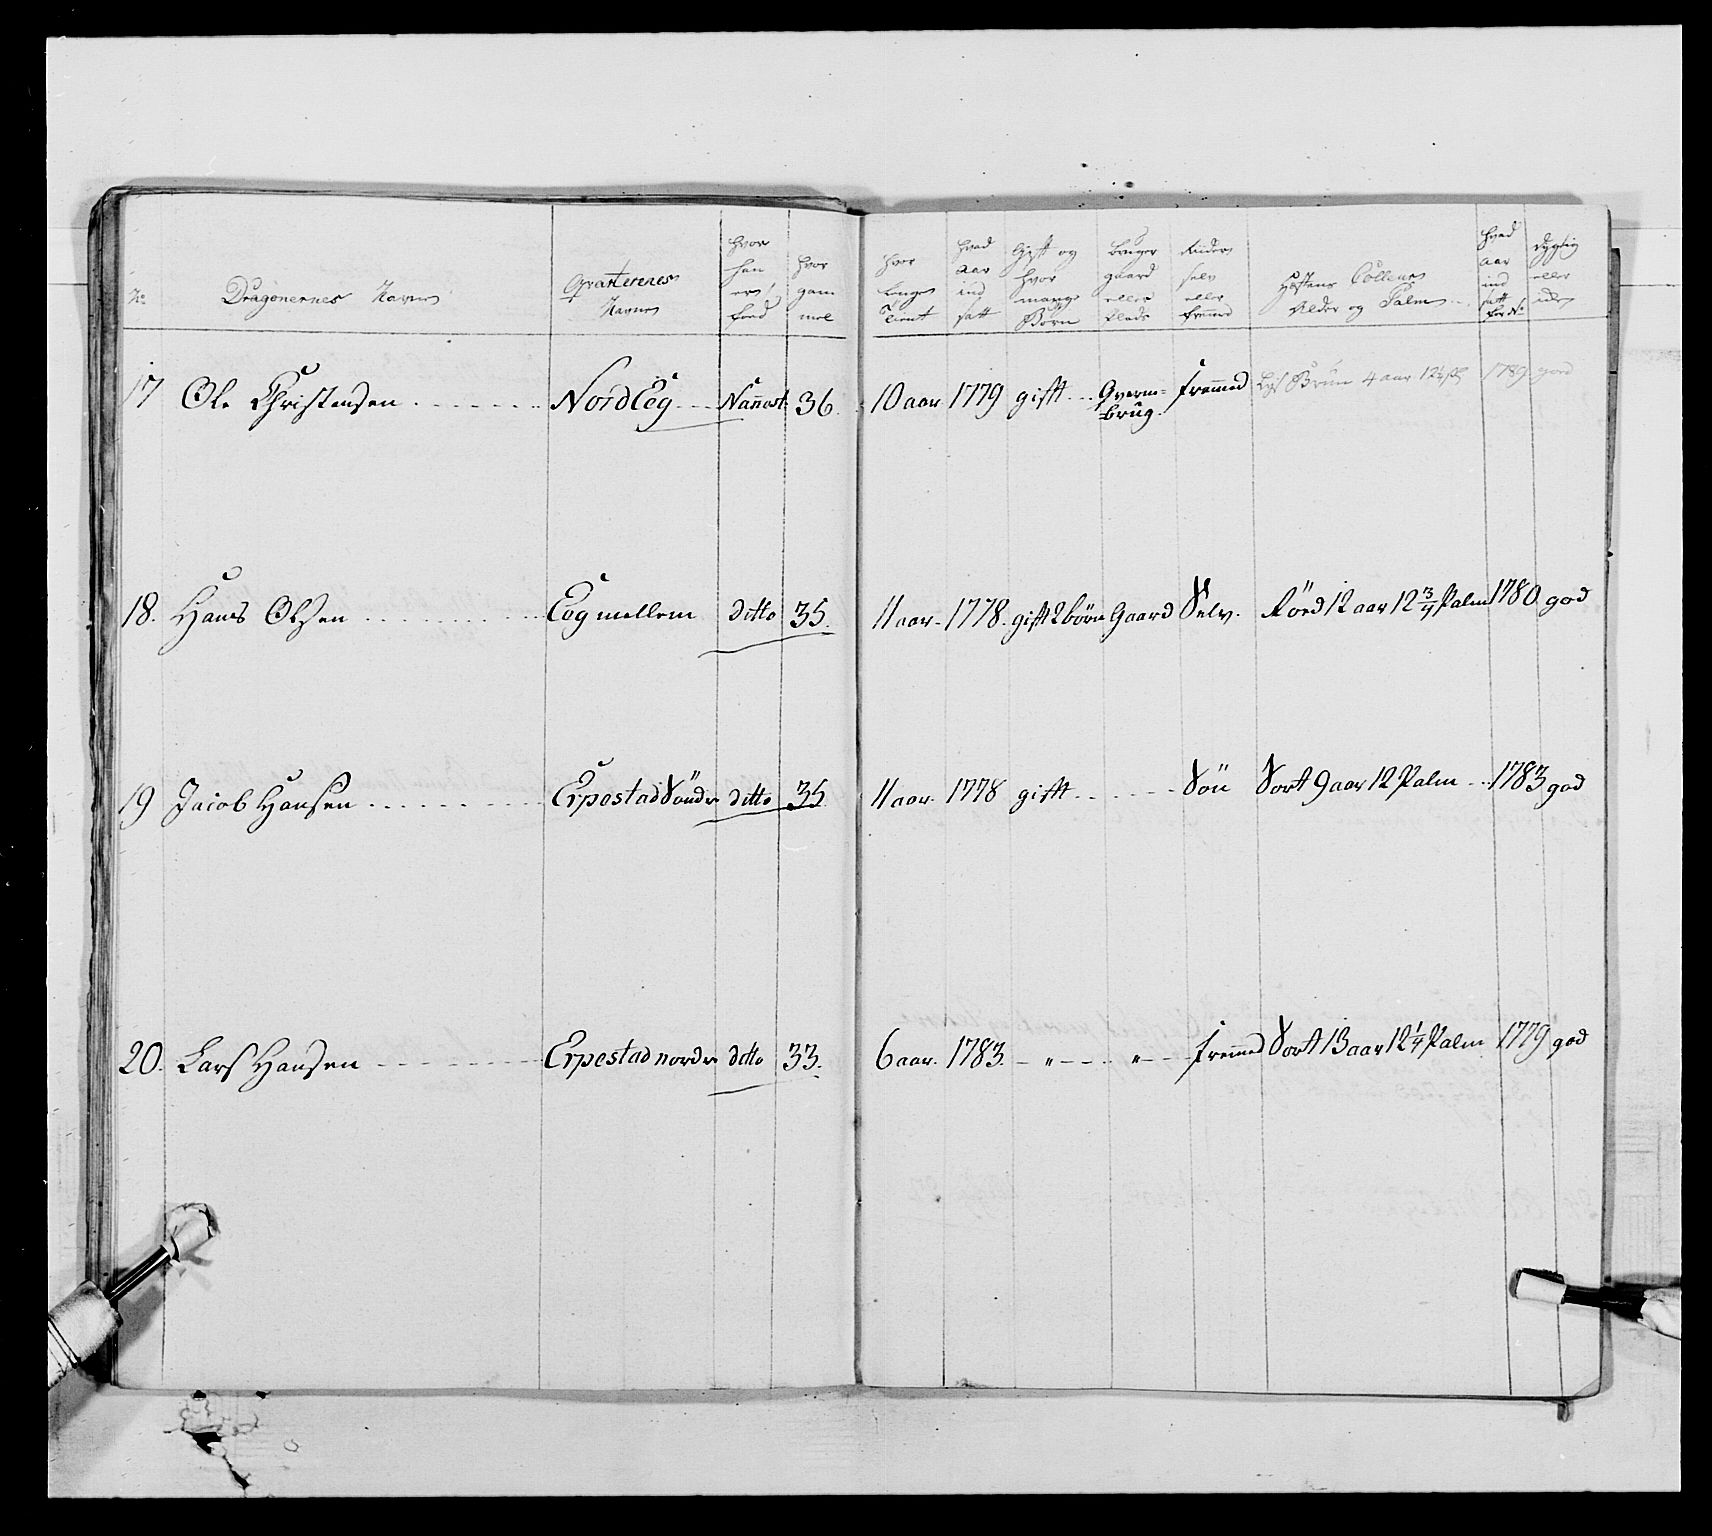 No
Dragonernes Navne
Qvarterenes
Navne
hvor
han
er
föed
hvor
gam
mel
hvor
længe
tient
hvad
aar
ind
satt
Gift og
hvor
mange
Börn
bruger
gaard
eller
Plads
Riider
selv
eller
fremmed
Hæstens Colleur
Alder og Palm
hvad
aar
ind
satt
for No
dygtig
eller
17 Ole Christensen Nord Eeg Nannest. 36. 10 aar 1779 gift Qværn=
brug. fremmed Lys Bruun 4 aar 12½ Pl 1789 goed
18. Hans Olsen Eeg mellem ditto 35. 11 aar. 1778. gift 2 börn Gaard Selv. Röed 12 aar 12 3/4 Palm 1780 god
19 Jacob Hansen Erpestad Söndr ditto 35 11 aar. 1778 gift Sön Sort 9 aar 12 Palm 1783 god
20. Lars Hansen Erpestad nordr ditto 33. 6 aar. 1783. " " fremmed Sort 13 aar 12 1/4 Palm 1779 god